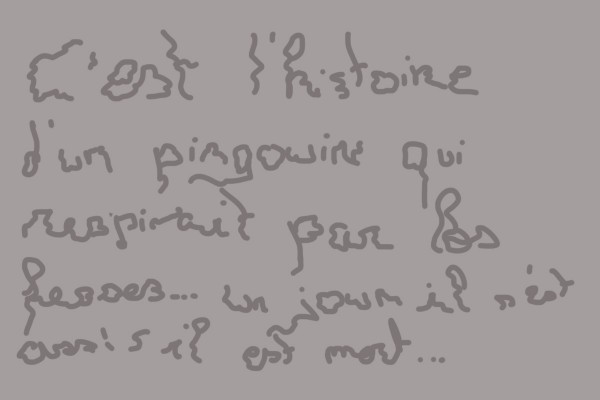 C'est l'histoire
d'un pingouin qui
respirait par les
fesses... un jour il s'est
assis il est mort...